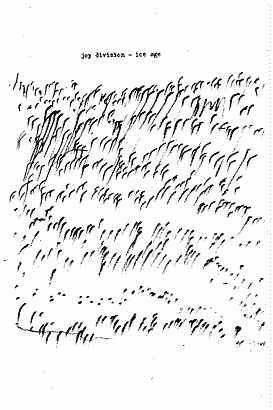 joy division - ice age